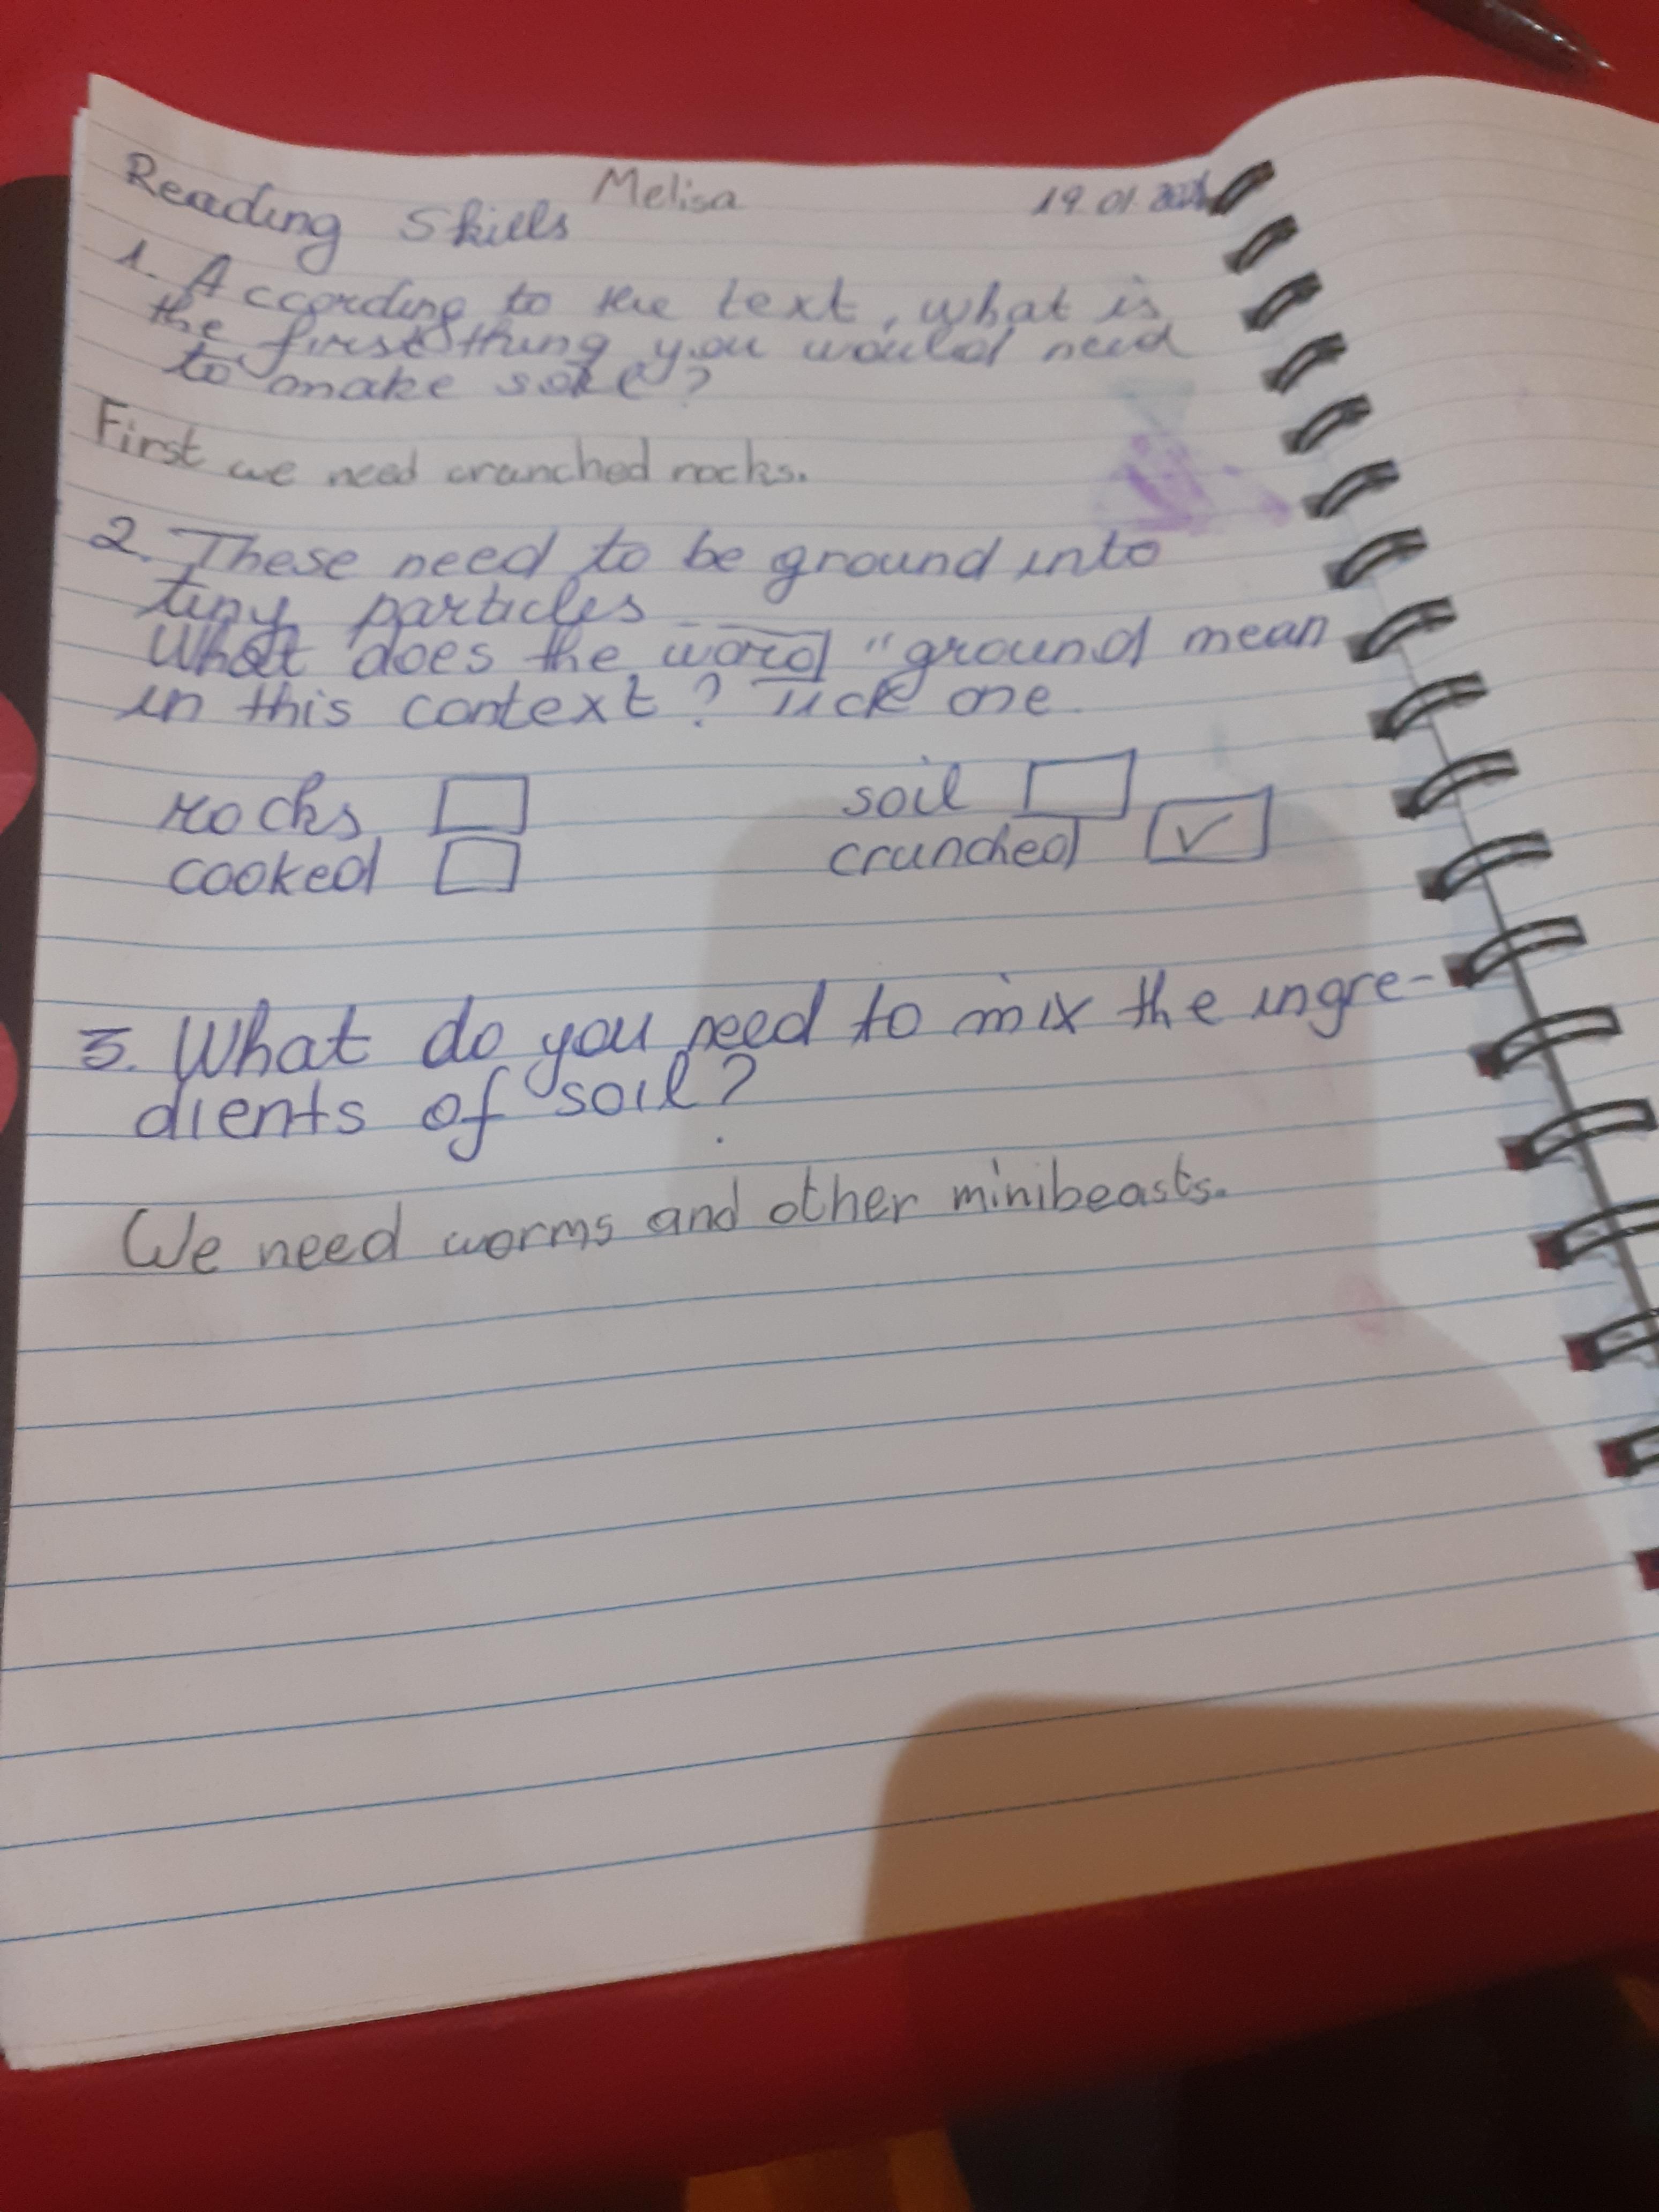 Reading Skills Melisa 19.01.
1. According to the text, what is
the first thing you would need
to make soil?
First we need crunched rocks.
2. These need to be ground into
tiny particles
What does the word "ground mean
in this context? Tick one.
rocks soil
cooked crunched ✓
3. What do you need to mix the ingre-
dients of soil?
We need worms and other minibeasts.